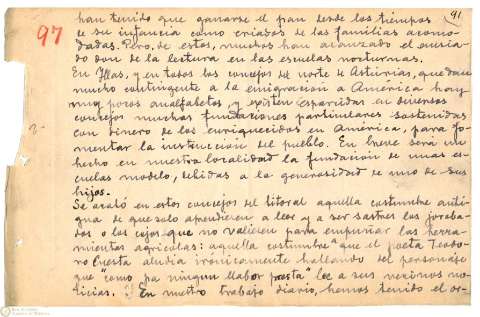 91
97
han tenido que ganarse el pan desde los tiempos
de su infancia como criados de las familias acomo-
dadas. Pero, de estos, muchos han avanzado el ansia-
do don de la lectura en las escuelas nocturnas.
En Illas, y en todos los concejos del norte de Asturias, que dan
mucho contingente a la emigración a América hay
muy pocos analfabetos y existen esparcidas en diversos
concejos muchas fundaciones particulares sostenidas
con dinero de los enriquecidos en América, para fo-
mentar la instrucción del pueblo. En breve será un
hecho en nuestra localidad la fundación de unas es-
cuelas modelo, debidas a la generosidad de uno de sus
hijos.
Se acabó en estos concejos del litoral aquella costumbre anti-
gua de que solo aprendieran a leer y a ser sastres los joroba-
dos o los cojos que no valieran para empuñar las herra-
mientas agrícolas: aquella costumbre a que el poeta Teodo-
ro Cuesta aludía irónicamente hablando del personaje
que "como pa ningun llabor presta" lee a sus vecinos no-
ticias. En nuestro trabajo diario, hemos tenido el or-